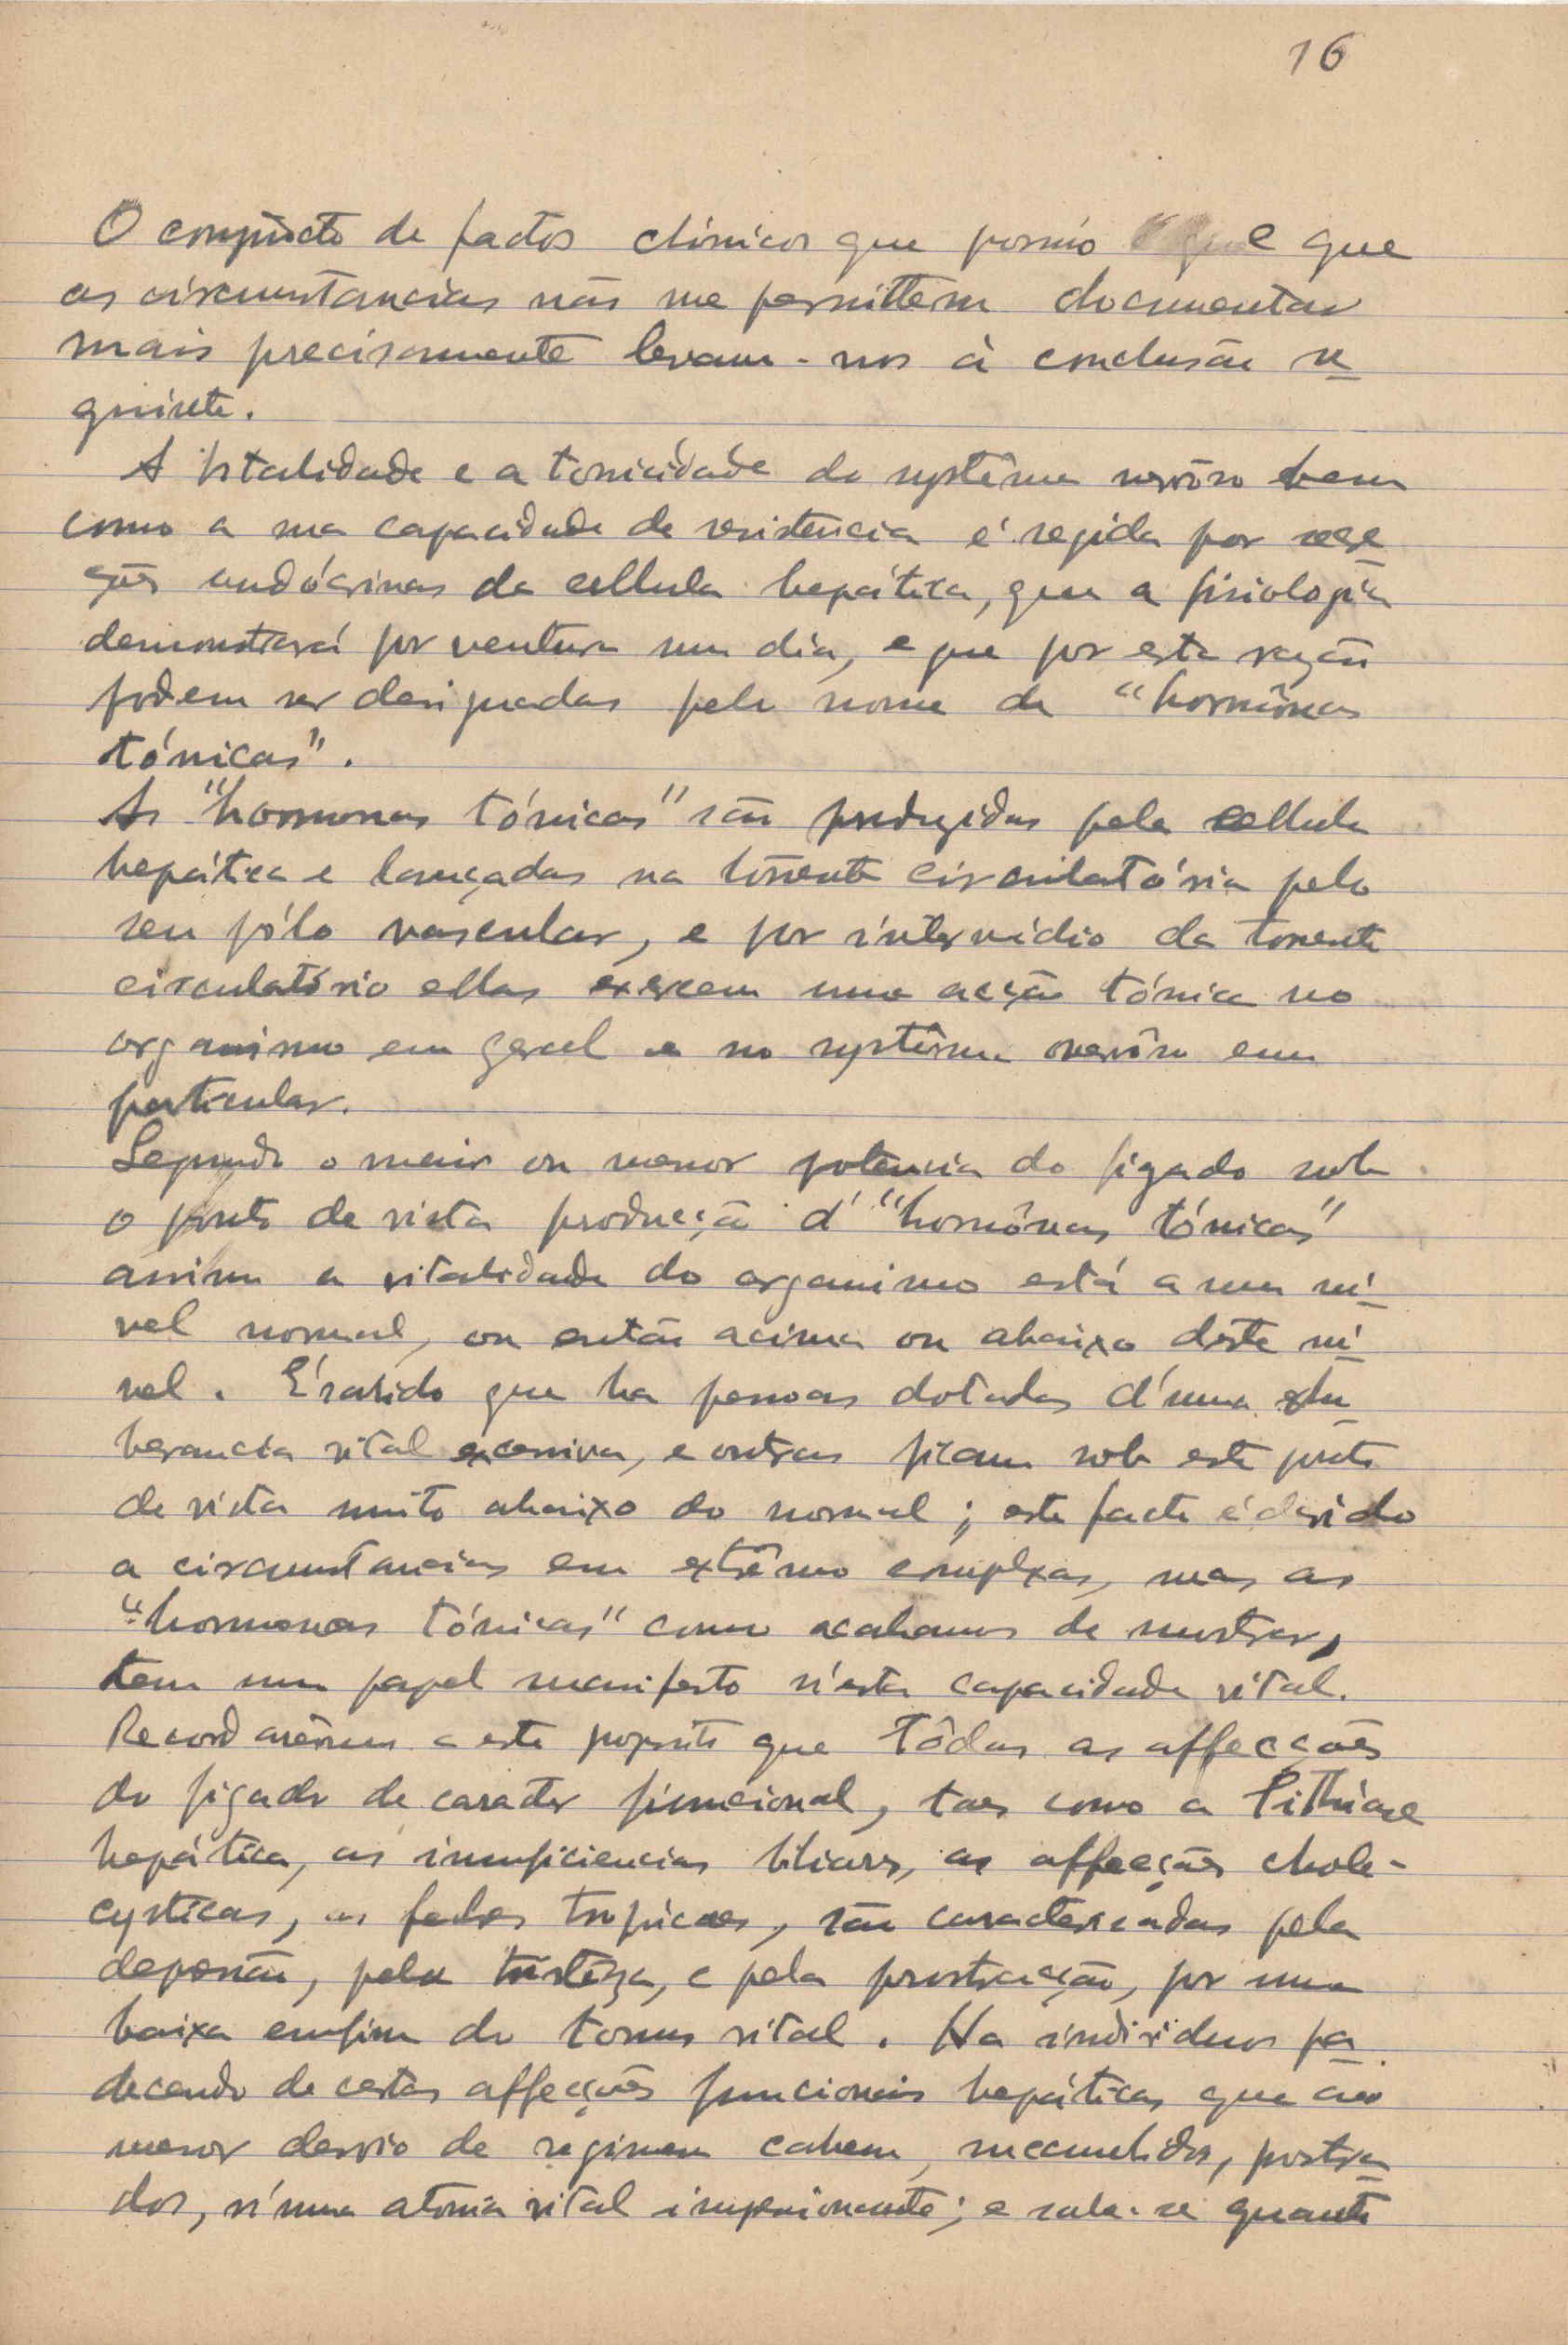 16
O conjuncto de factos clinicos que possúo e que
as circunstancias não me permittem documentar
mais precisamente levam-nos à conclusão se
guinte.
A Vitalidade e a tonicidade do systêma nervôso bem
como a sua capacidade de resistencia é regida por secre
ções endócrinas da cellula hepática, que a fisiologia
demonstrará por ventura um dia, e que por esta razão
podem ser designadas pelo nome de "hormônas
tónicas".
As "hormonas tónicas" são produzidas pela cellula
hepática e lançadas na torrente circulatória pelo
seu pólo vascular, e por intermédio da torrente
circulatório ellas exercem uma acção tónica no
organismo em geral e no systêma nervôso em
particular.
Segundo o maior ou menor potencia do figado sob
o ponto de vista producção d' "hormônas tónicas"
assim a vitalidade do organismo está a um ni
vel normal, ou então acima ou abaixo deste ni
vel. É sabido que ha pessoas dotadas d'uma exhu
berancia vital excessiva, e outras ficam sob este ponto
de vista muito abaixo do normal; este facto é devido
a circunstancias em extrêmo complexas, mas as
"hormonas tónicas" como acabamos de mostrar,
tem um papel manifesto n'esta capacidade vital.
Recordarêmos a este proposito que tôdas as affecções
do figado de caracter funccional, taes como a lithiase
hepática, as insuficiencias biliares, as affecções chole-
cysticas, as febres tropicaes, são caracterizadas pela
depressão, pela tristêza, e pela prostracção, por uma
baixa emfim do tonus vital. Ha individuos pa
decendo de certas affecções funcionais hepáticas que ao
menor desvio de regimen cahem, sucumbidos, postra
dos, n'uma atonia vital impressionante; e sabe-se quanto